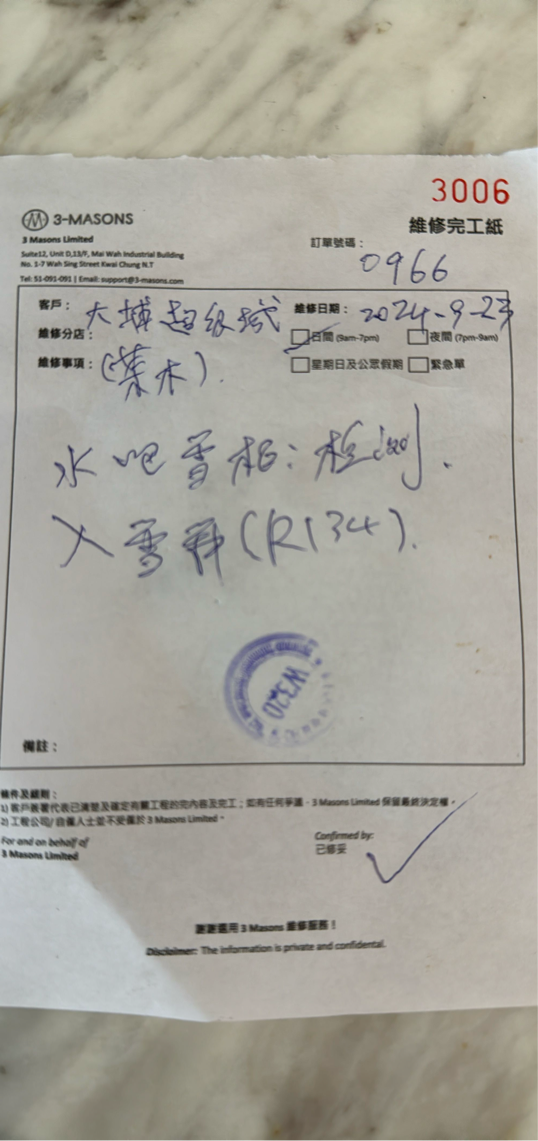 3006
3-MASONS
維修完工紙
3 Masons Limited
訂單號碼：
Suite12, Unit D,13/F, Mai Wah Industrial Building
No. 1-7 Wah Sing Street Kwai Chung N.T
0966
Tel: 51-091-091 | Email: support@3-masons.com
客戶： 大埔超級城 維修日期： 2024-9-23
維修分店： 日間 (9am-7pm) 夜間 (7pm-9am)
維修事項： (葉木). 星期日及公眾假期 緊急單
水吧雪柜：檢測.
入雪種(R134).
W320
備註：
條件及細則：
1) 客戶簽署代表已清楚及確定有關工程的完內容及完工；如有任何爭議，3 Masons Limited 保留最終決定權。
2) 工程公司/自僱人士並不受僱於 3 Masons Limited。
For and on behalf of
3 Masons Limited
Confirmed by:
已修妥
謝謝選用 3 Masons 維修服務！
Disclaimer: The information is private and confidental.